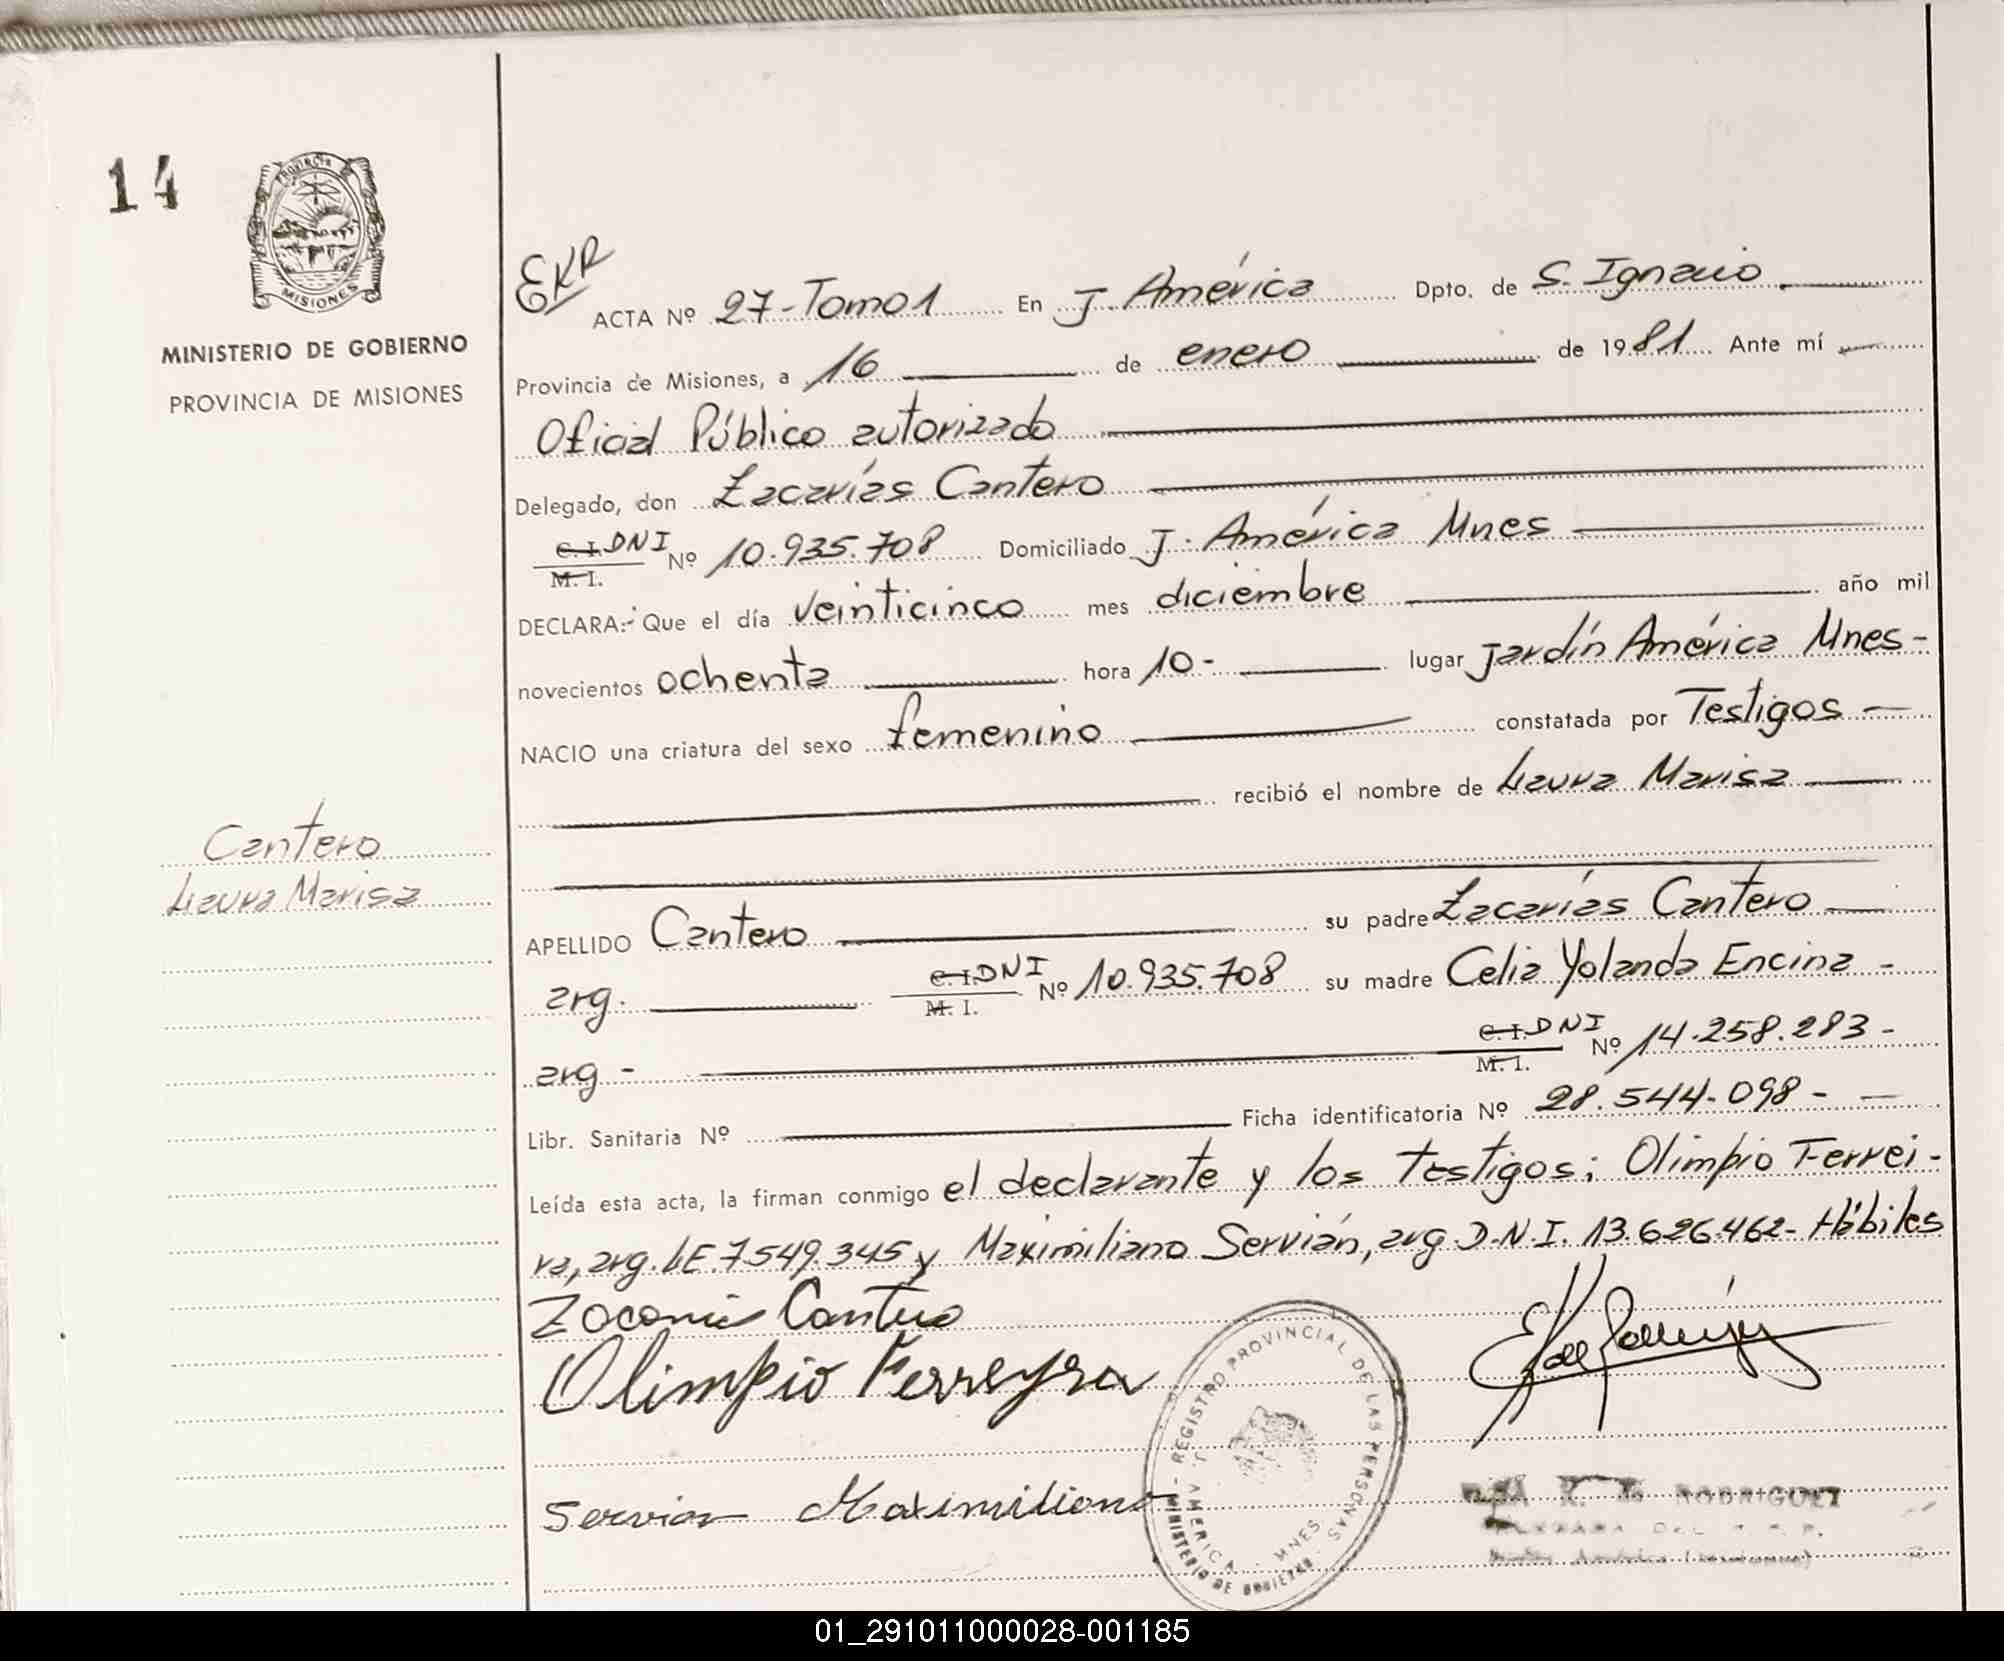 14
PROVINCIA
MISIONES
MINISTERIO DE GOBIERNO
PROVINCIA DE MISIONES
EKR
ACTA Nº 27-Tomo1 En J. América Dpto. de S. Ignacio
Provincia de Misiones, a 16 de enero de 1981 Ante mí
Oficial Público autorizado
Delegado, don Zacarías Cantero
C.I. DNI Nº 10.935.708 Domiciliado J. América Mnes
M. I.
DECLARA:- Que el día veinticinco mes diciembre año mil
novecientos ochenta hora 10- lugar Jardín América Mnes-
NACIO una criatura del sexo femenino constatada por Testigos
recibió el nombre de Laura Marisa
Cantero
Laura Marisa
APELLIDO Cantero su padre Zacarías Cantero
arg. C.I. DNI Nº 10.935.708 su madre Celia Yolanda Encina -
M. I.
arg - C.I. DNI Nº 14.258.283-
M. I.
Libr. Sanitaria Nº Ficha identificatoria Nº 28.544.098-
Leída esta acta, la firman conmigo el declarante y los testigos; Olimpio Ferrei-
ra, arg. LE. 7.549.345 y Maximiliano Servián, arg. D.N.I. 13.626.462- Hábiles
Zacarias Cantero
Olimpio Ferreyra
Servian Maximiliano
REGISTRO PROVINCIAL DE LAS PERSONAS
MINISTERIO DE GOBIERNO
J. AMERICA - MNES
RODRIGUEZ
01_291011000028-001185